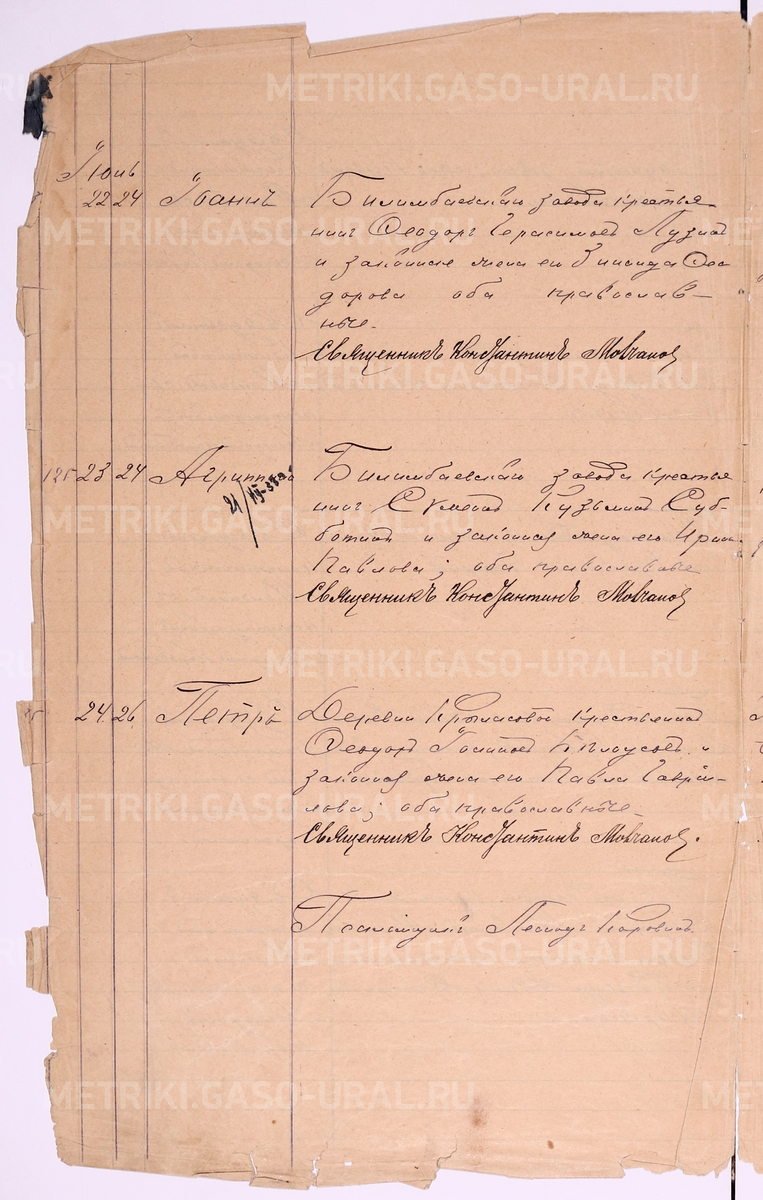 Іюнь
22 24 Іоаннъ Билимбаевскаго завода крестья-
нинъ Ѳеодоръ Герасимовъ
и законная жена его Зинаида Ѳео
дорова оба православ-
ные.
Священникъ Константинъ Мовчановъ
125 23 24 Агриппина Билимбаевскаго завода крестья
21/IV-37г
нинъ Кузьминъ Суб-
ботинъ и законная жена его Ирина
Павлова; оба православные
Священникъ Константинъ Мовчановъ
24 26 Петръ Деревни Крыласовой крестьянинъ
Ѳеодоръ и
законная жена его Павла Гаврі-
лова; оба православные
Священникъ Константинъ Мовчановъ.
Псаломщикъ Коровинъ
METRIKI.GASO-URAL.RU